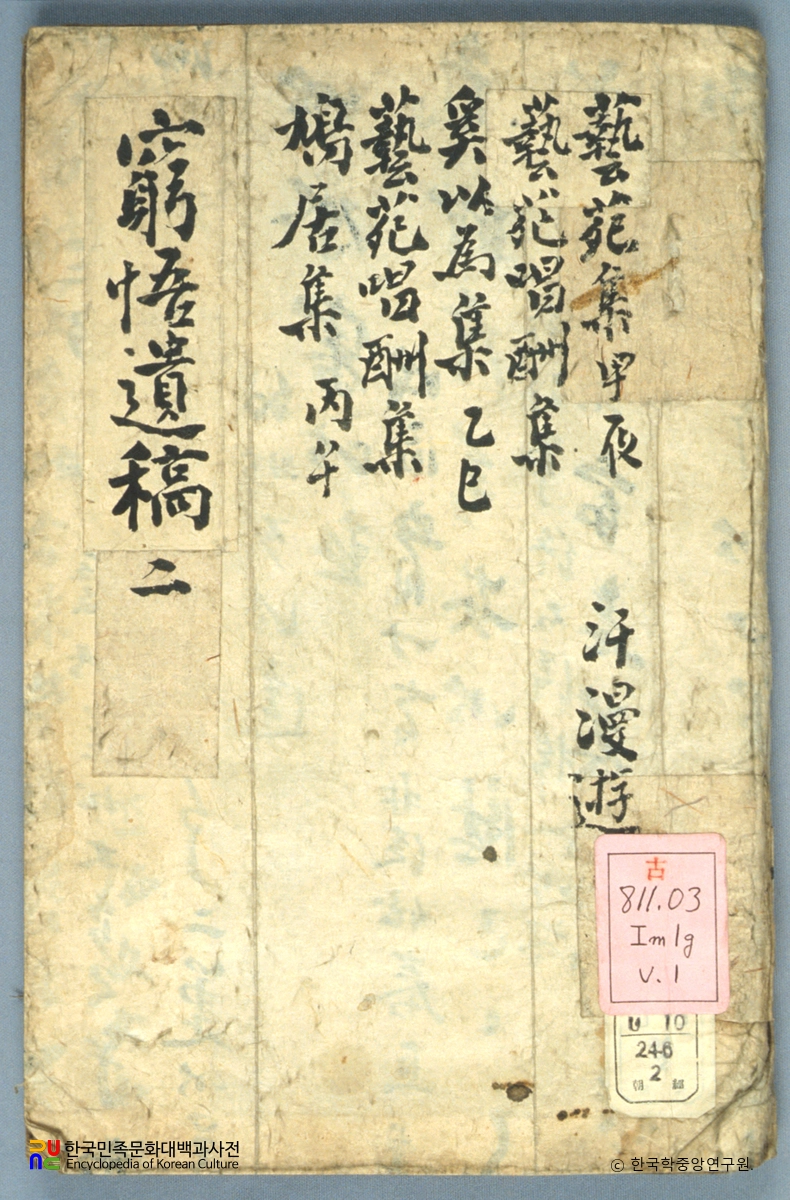 藝苑集甲辰 汗漫遊
藝苑唱酬集
奚以為集 乙巳
藝苑唱酬集
居集 丙午
窮悟遺稿 二
古
811.03
Im1g
V.1
10
246
2
朝
한국민족문화대백과사전
Encyclopedia of Korean Culture
© 한국학중앙연구원